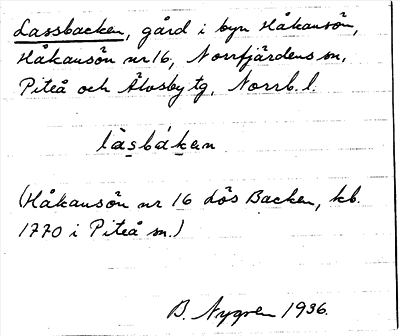 Lassbacken, gård i byn Håkansön,
Håkansön nr 16, Norrfjärdens sn,
Piteå och Älvsby tg, Norrb. l.
làsbáken
(Håkansön nr 16 Lös Backen, kb.
1770 i Piteå sn.)
B. Nygren 1936.